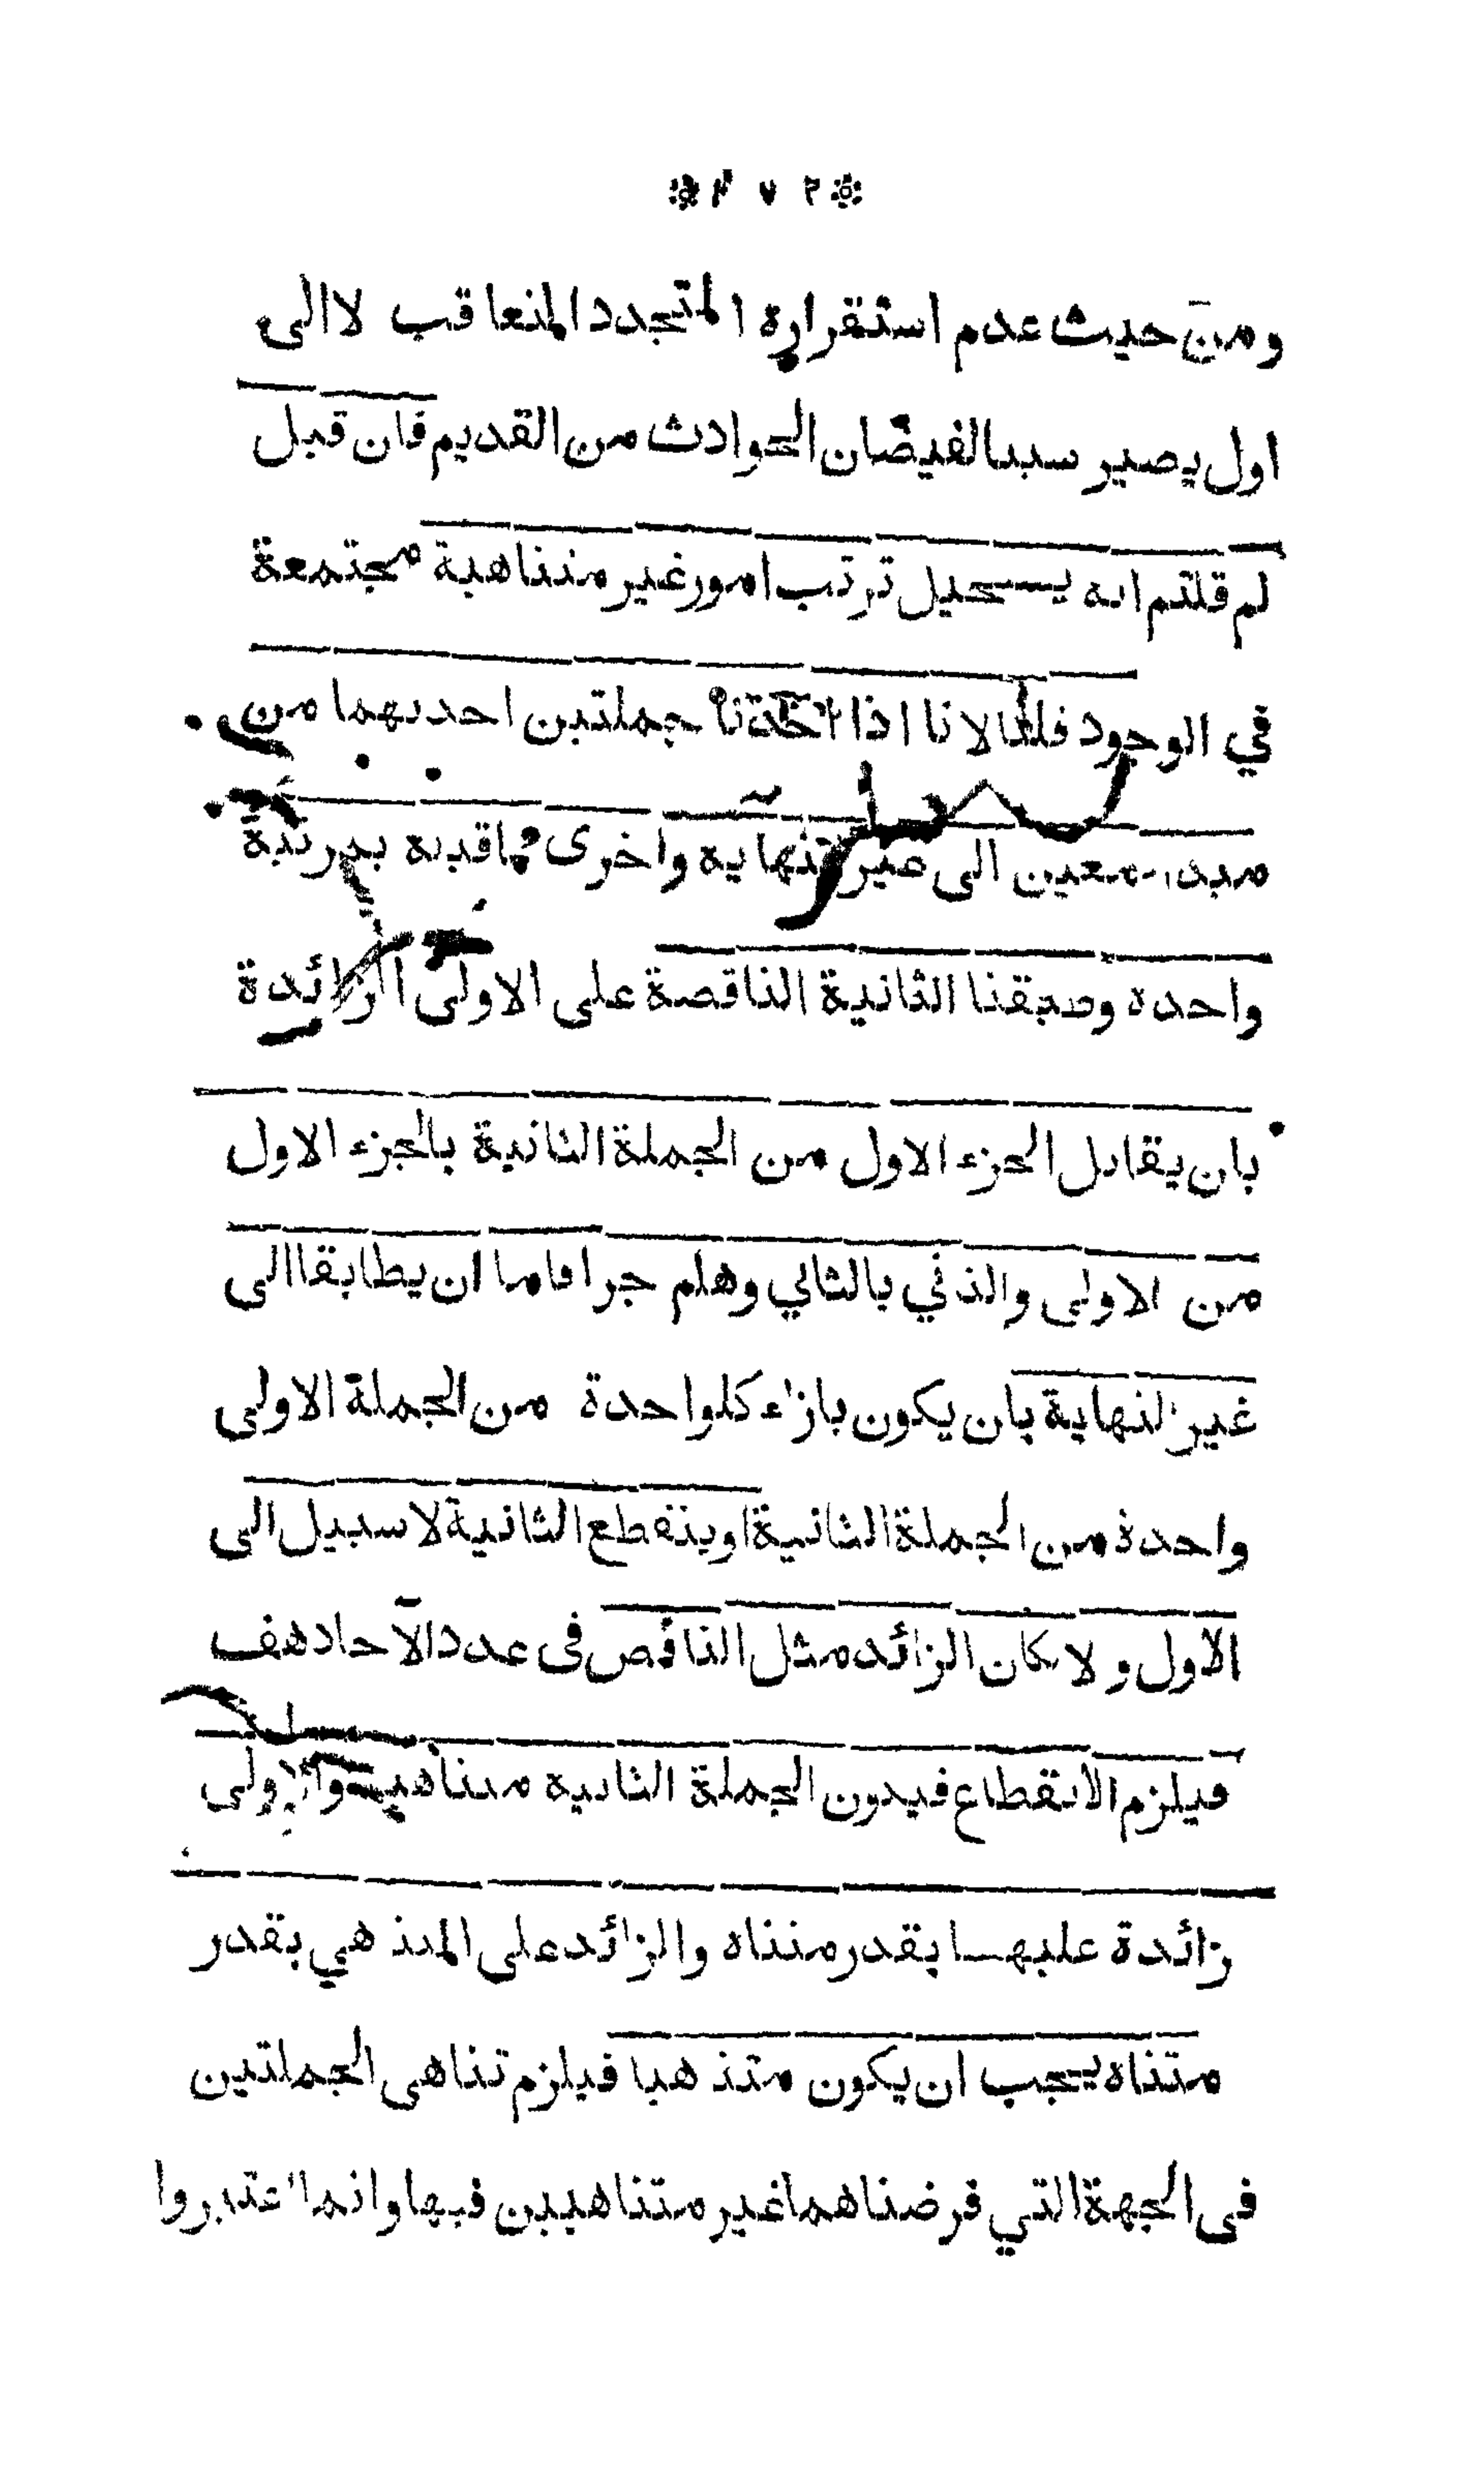 * ٢ ٧ ٢ *
ومن حيث عدم استقراره المتجدد المتعاقب لا الى
اول يصير سببا لفيضان الحوادث من القديم فان قيل
لم قلتم انه يستحيل ترتب امور غير متناهية مجتمعة
في الوجود قلنا لانا اذا اخذنا جملتين احديهما من
مبدء معين الى غير النهاية واخرى مما قبله بمرتبة
واحدة وطبقنا الثانية الناقصة على الاولى الزائدة
بان يقابل الجزء الاول من الجملة الثانية بالجزء الاول
من الاولى والثاني بالثاني وهلم جرا فاما ان يطابقا الى
غير النهاية بان يكون بازاء كل واحدة من الجملة الاولى
واحدة من الجملة الثانية او ينقطع الثانية لا سبيل الى
الاول والا لكان الزائد مثل الناقص فى عدد الآحاد هف
فيلزم الانقطاع فيكون الجملة الثانية متناهية والاولى
زائدة عليها بقدر متناه والزائد على المتناهي بقدر
متناه يجب ان يكون متناهيا فيلزم تناهى الجملتين
فى الجهة التي فرضناهما غير متناهيين فيها وانما اعتبروا